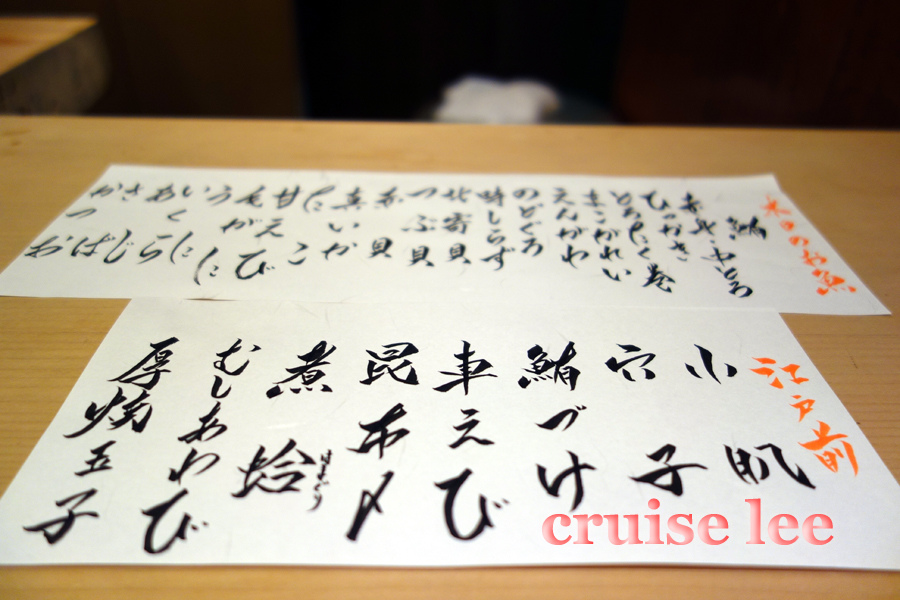 本日のお魚
鮪
赤身・中とろ
ひっかき
とろたく巻
まこがれい
えんがわ
のどぐろ
時しらず
北寄貝
つぶ貝
赤貝
真いか
たこ
甘えび
毛がに
うに
いくら
あじ
さば
かつお
江戸前
小肌
穴子
鮪づけ
車えび
昆布〆
煮蛤
はまぐり
むしあわび
厚焼玉子
cruise lee